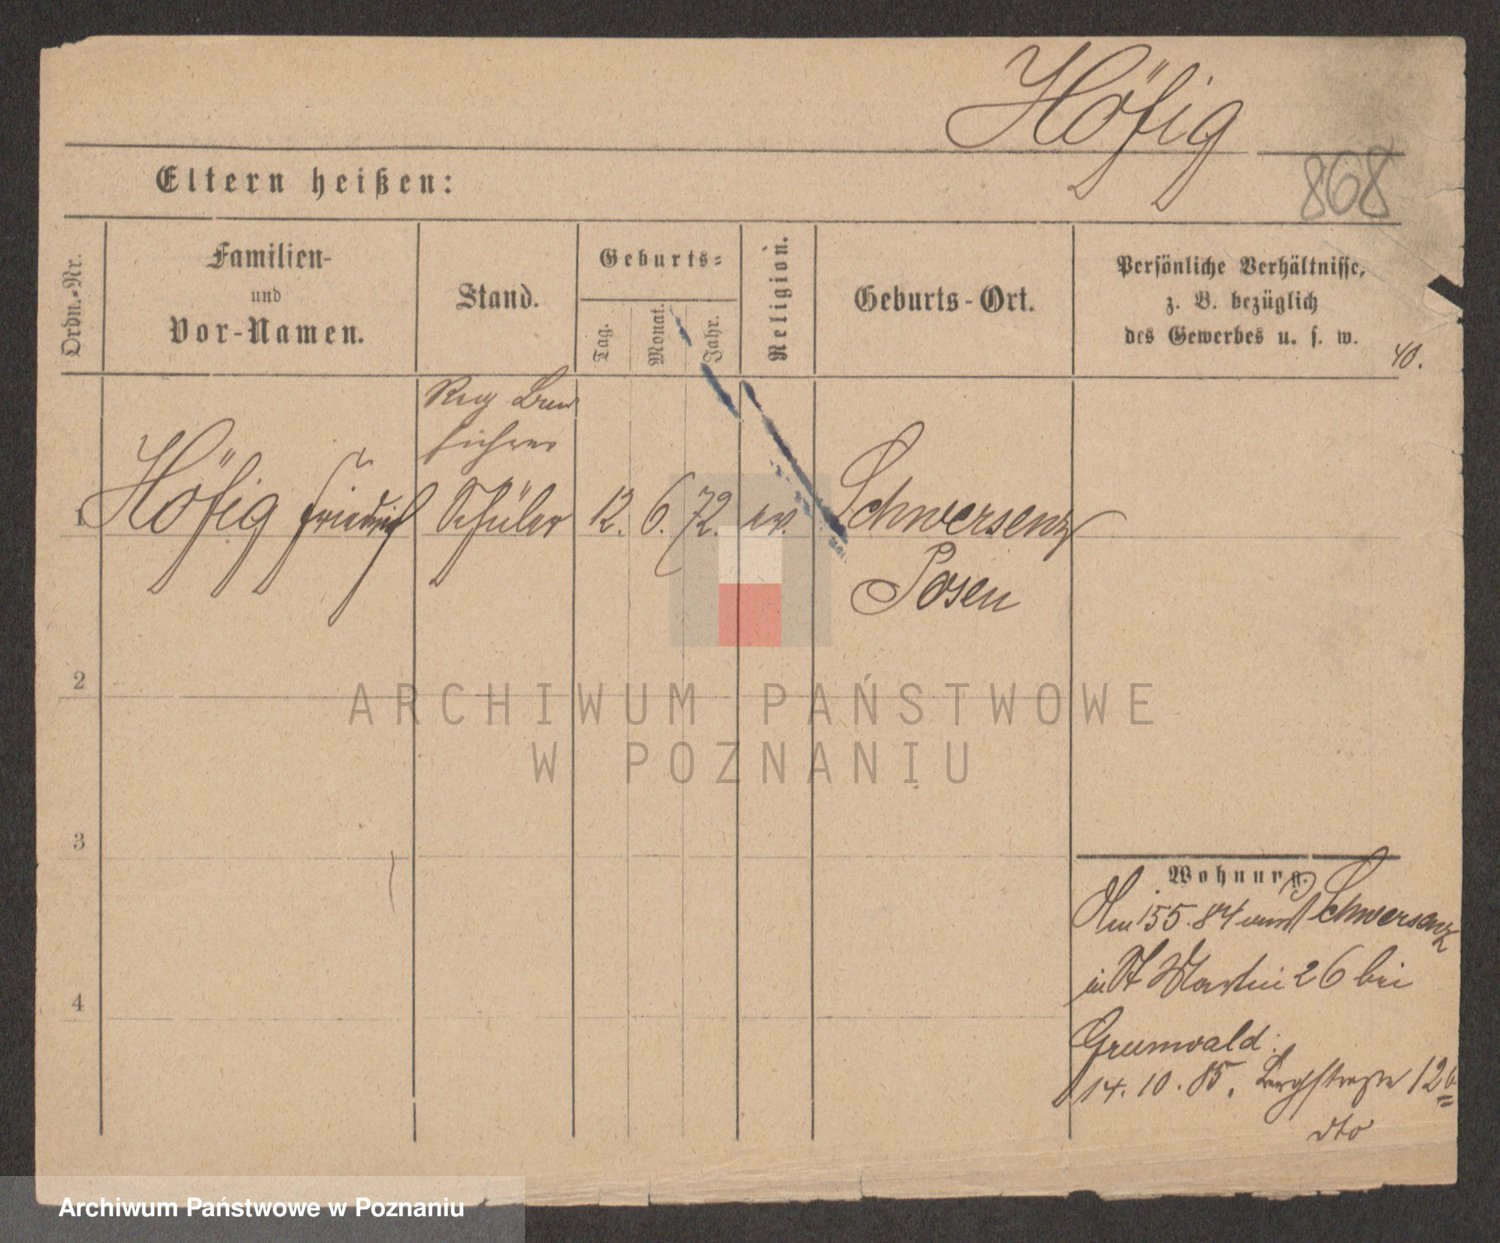 Höfig
868
Eltern heißen:
Ordn.-Nr.
Familien-
und
Vor-Namen.
Stand.
Geburts-
Tag.
Monat.
Jahr.
Religion.
Geburts-Ort.
Persönliche Verhältnisse,
z. B. bezüglich
des Gewerbes u. s. w.
40.
Reg Bau
führer
1 Höfig Friedrich Schüler 12. 6. 72. ev. Schwersenz
Posen
2
ARCHIWUM PAŃSTWOWE
W POZNANIU
3
Wohnung.
Am 15 5. 84 Schwersenz
in St Martin 26 bei
4
Grunwald.
14. 10. 85. Bergstrasse 12b
dto
Archiwum Państwowe w Poznaniu